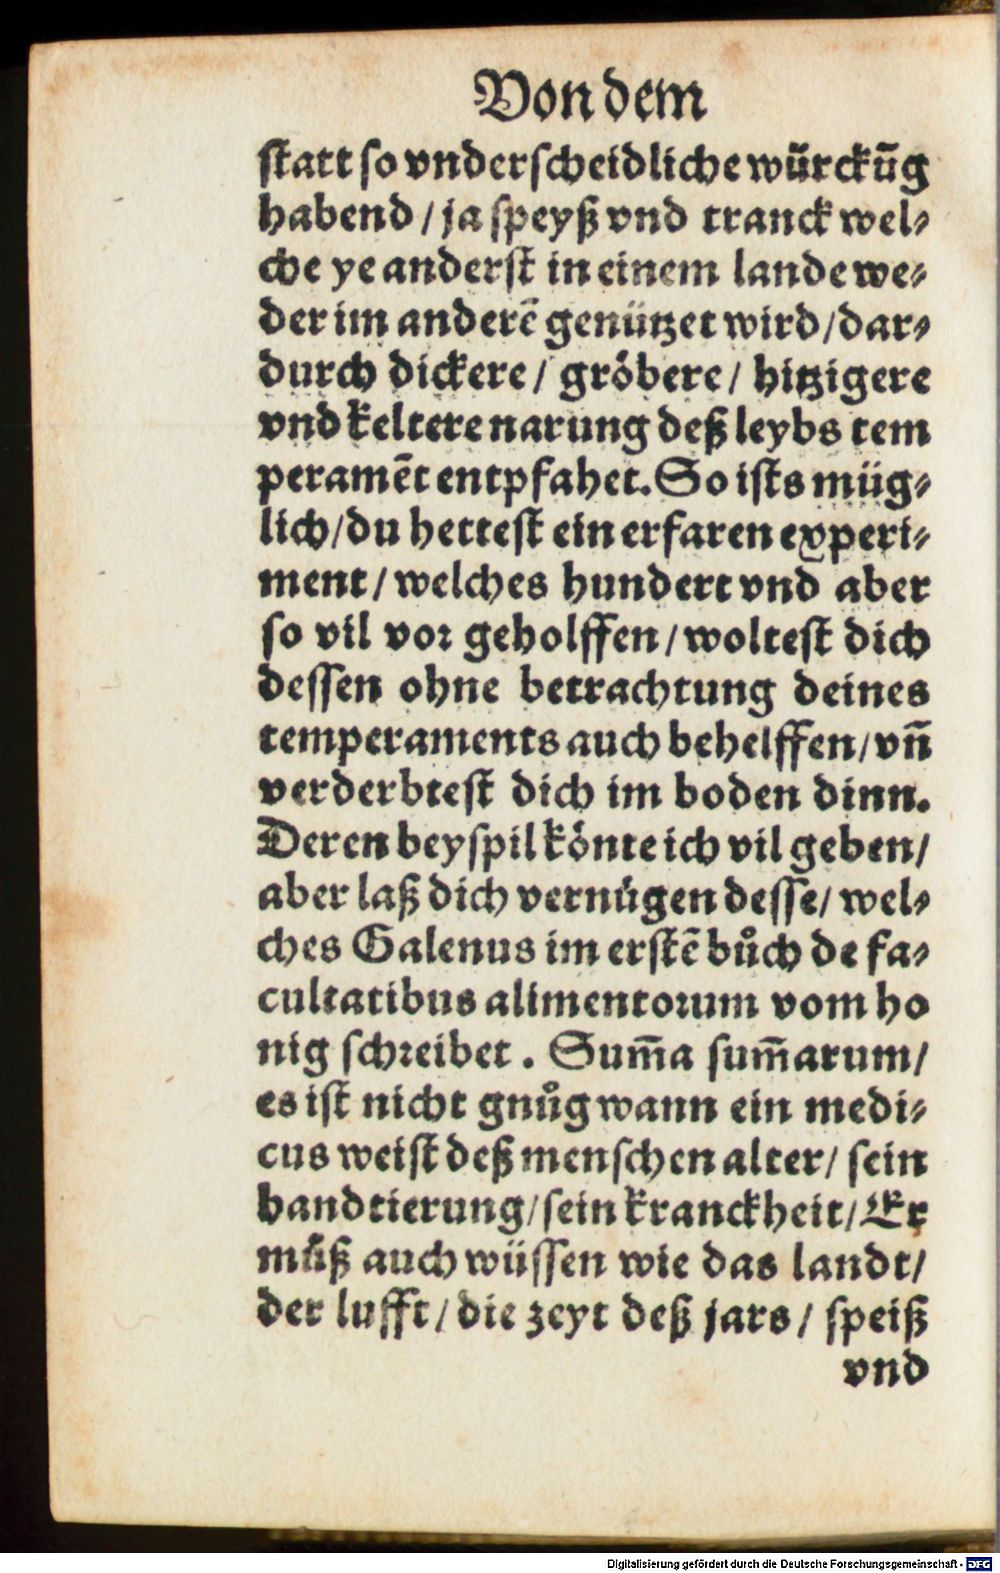 Von dem
statt so vnderscheidliche würckūg
habend / ja speyß vnd tranck wel⸗
che ye anderst in einem lande we⸗
der im anderē genützet wird / dar⸗
durch dickere / gröbere / hitzigere
vnd keltere narung deß leybs tem
peramēt entpfahet. So ists müg⸗
lich / du hettest ein erfaren experi⸗
ment / welches hundert vnd aber
so vil vor geholffen / woltest dich
dessen ohne betrachtung deines
temperaments auch behelffen / vn̄
verderbtest dich im boden dinn.
Deren beyspil könte ich vil geben /
aber laß dich vernügen desse / wel⸗
ches Galenus im erstē bůch de fa⸗
cultatibus alimentorum vom ho
nig schreibet . Sum̄a sum̄arum /
es ist nicht gnůg wann ein medi⸗
cus weist deß menschen alter / sein
handtierung / sein kranckheit / Er
můß auch wüssen wie das landt /
der lufft / die zeyt deß jars / speiß
vnd
Digitalisierung gefördert durch die Deutsche Forschungsgemeinschaft - DFG